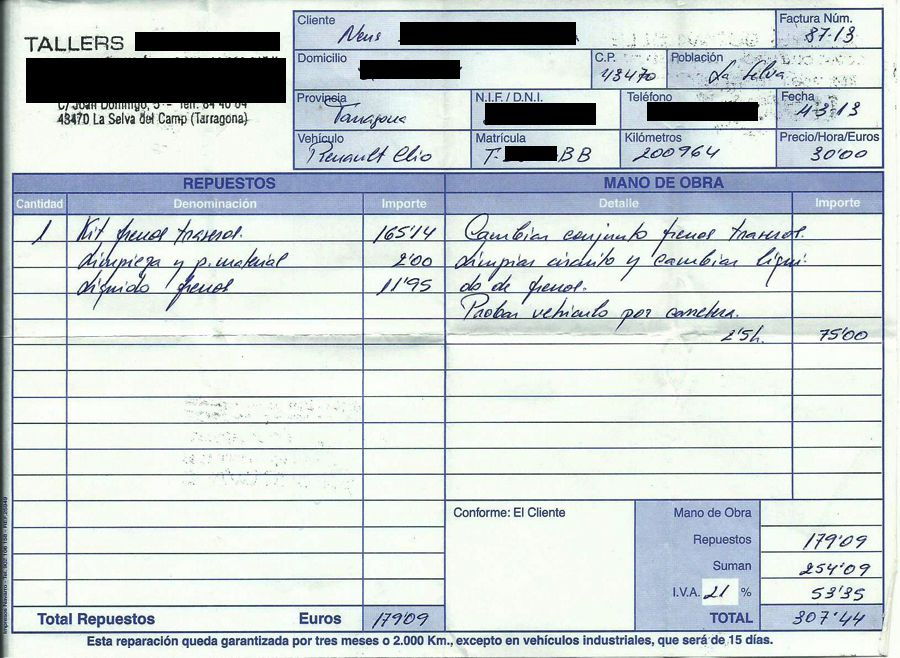 TALLERS
C/ Joan Domingo, 5 - Tel. 84 40 64
43470 La Selva del Camp (Tarragona)
Cliente
Neus
Factura Núm.
87-13
Domicilio
C.P.
43470
Población
La Selva
Provincia
Tarragona
N.I.F. / D.N.I.
Teléfono
Fecha
4-3-13
Vehículo
Renault Clio
Matrícula
T- BB
Kilómetros
200964
Precio/Hora/Euros
30'00
REPUESTOS
MANO DE OBRA
Cantidad Denominación Importe
Detalle Importe
1 Kit frenos traseros. 165'14
Limpieza y p. material 2'00
Liquido frenos 11'95
Cambiar conjunto frenos traseros.
Limpiar circuito y cambiar liqui
do de frenos.
Probar vehiculo por carretera.
2'5h. 75'00
Conforme: El Cliente
Mano de Obra
Repuestos 179'09
Suman 254'09
I.V.A. 21 % 53'35
TOTAL 307'44
Total Repuestos Euros 179'09
Esta reparación queda garantizada por tres meses o 2.000 Km., excepto en vehículos industriales, que será de 15 días.